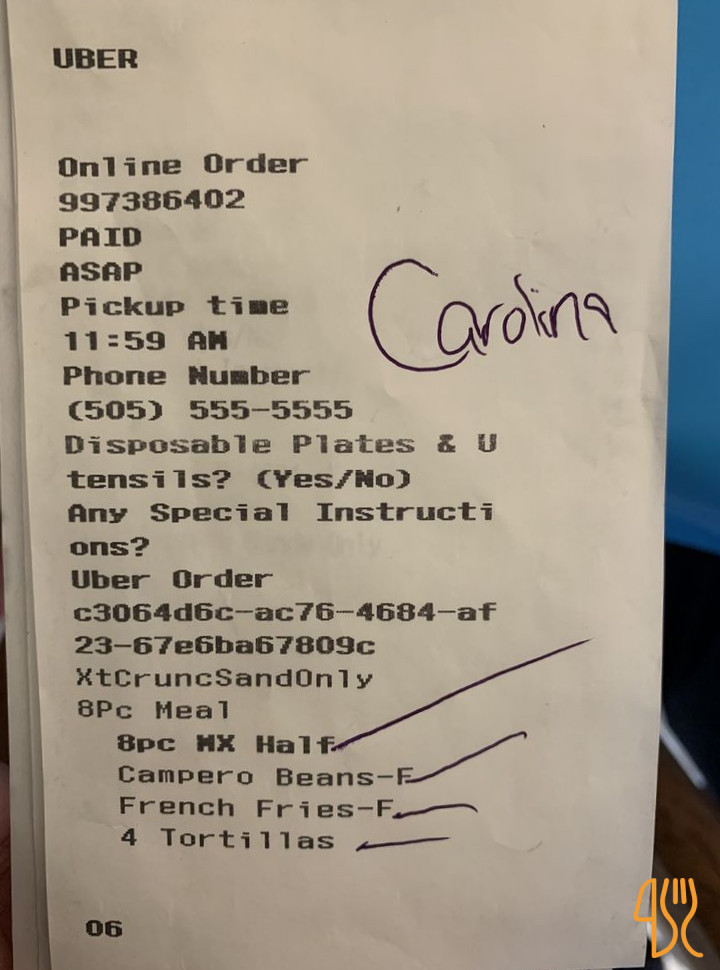 UBER
Online Order
997386402
PAID
ASAP
Pickup time
11:59 AM
Carolina
Phone Number
(505) 555-5555
Disposable Plates & U
tensils? (Yes/No)
Any Special Instructi
ons?
Uber Order
c3064d6c-ac76-4684-af
23-67e6ba67809c
XtCruncSandOnly
8Pc Meal
8pc MX Half
Campero Beans-F
French Fries-F
4 Tortillas
06